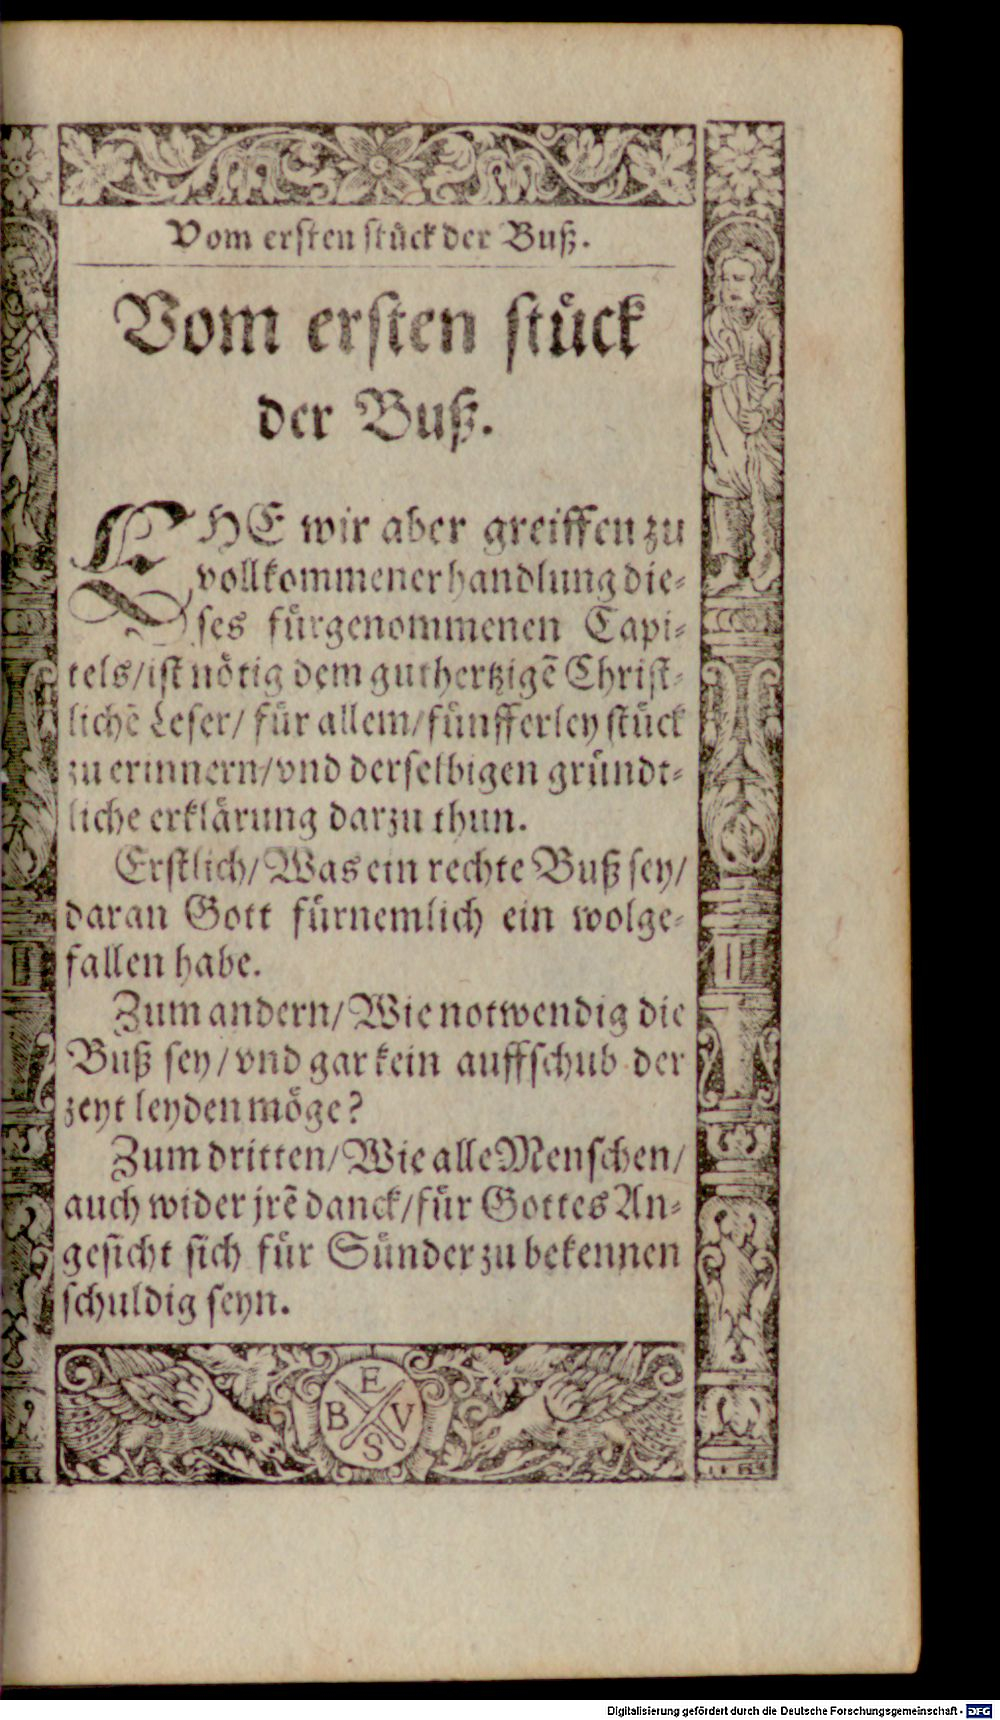 Vom erſten ſtuͤck der Buß.
Vom erſten ſtuͤck
der Buß.
EHE wir aber greiffen zu
vollkommener handlung die⸗
ſes fuͤrgenommenen Capi⸗
tels/ iſt noͤtig dem guthertzigẽ Chriſt⸗
lichẽ Leſer/ fuͤr allem/ fuͤnfferley ſtuͤck
zu erinnern/ vnd derſelbigen gruͤndt⸗
liche erklaͤrung darzu thun.
Erſtlich/ Was ein rechte Buß ſey/
daran Gott fuͤrnemlich ein wolge⸗
fallen habe.
Zum andern/ Wie notwendig die
Buß ſey/ vnd gar kein auffſchub der
zeyt leyden moͤge?
Zum dritten/ Wie alle Menſchen/
auch wider jrẽ danck/ fuͤr Gottes An⸗
geſicht ſich fuͤr Suͤnder zu bekennen
ſchuldig ſeyn.
E
B V
S
Digitalisierung gefördert durch die Deutsche Forschungsgemeinschaft - DFG